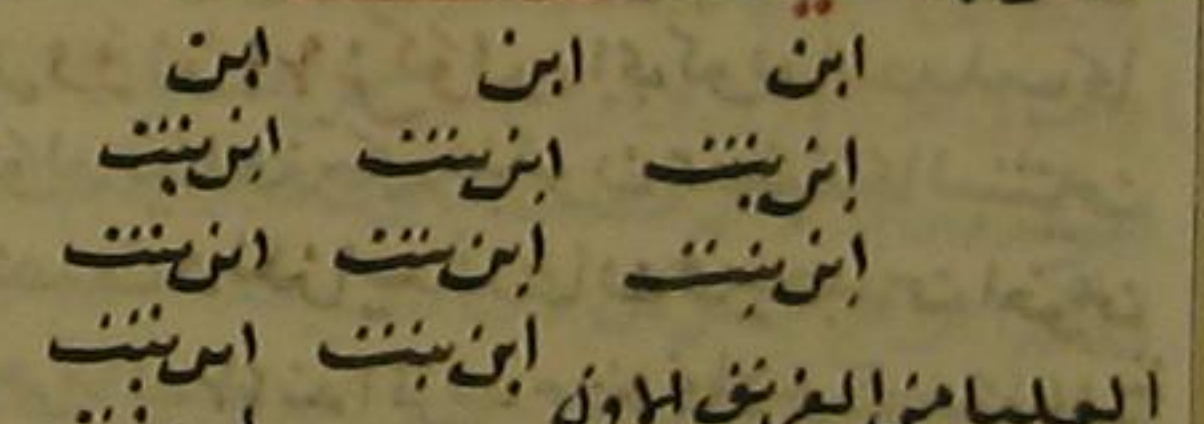 ابن ابن ابن
ابن بنت ابن بنت ابن بنت
ابن بنت ابن بنت ابن بنت
ابن بنت ابن بنت
العليا من الفريق الاول